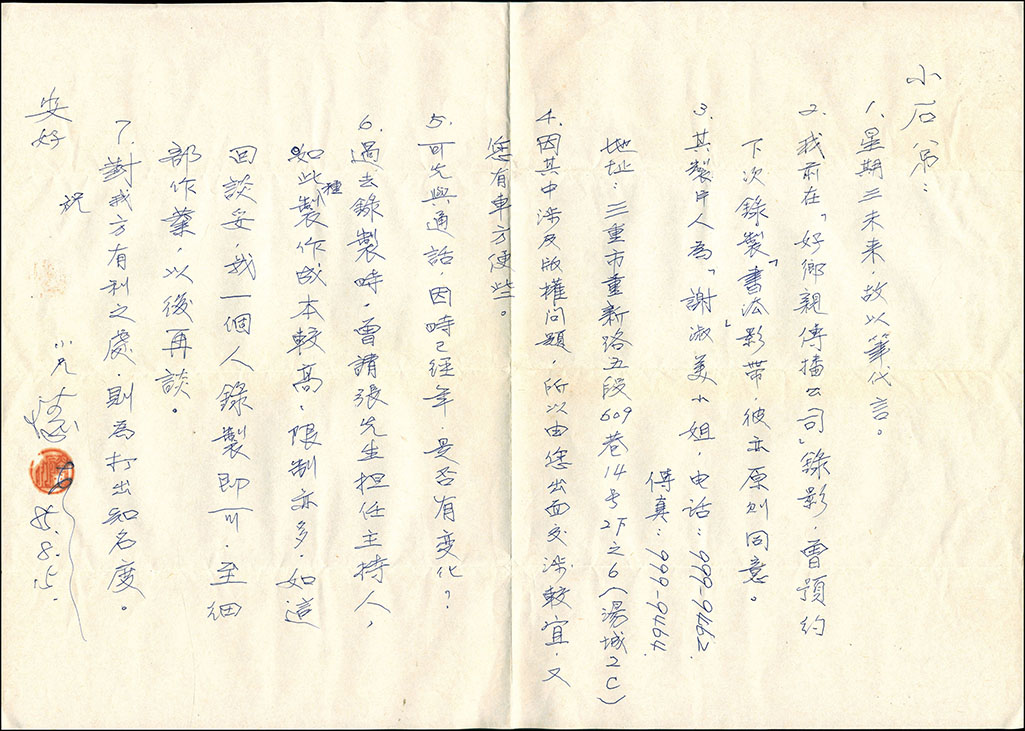 小石弟：
1. 星期三未来，故以筆代言。
2. 我前在「好鄉親傳播公司」錄影，曾預約
下次錄製「書法」影带，彼亦原則同意。
3. 其製片人為「謝淑美」小姐，电话：999-9462.
傳真：999-9464.
地址：三重市重新路五段609巷14号2下之6（湯城2C）
4. 因其中涉及版權问題，所以由您出面交涉較宜，又
您有車方便些。
5. 可先與通話，因時已經年，是否有变化？
6. 過去錄製時，曾請張先生担任主持人，
如此種製作成本較高，限制亦多，如這
回談妥，我一個人錄製即可，至細
部作業，以後再談。
7. 對我方有利之處，則為打出知名度。
祝
安好
小兄
85.8.15.